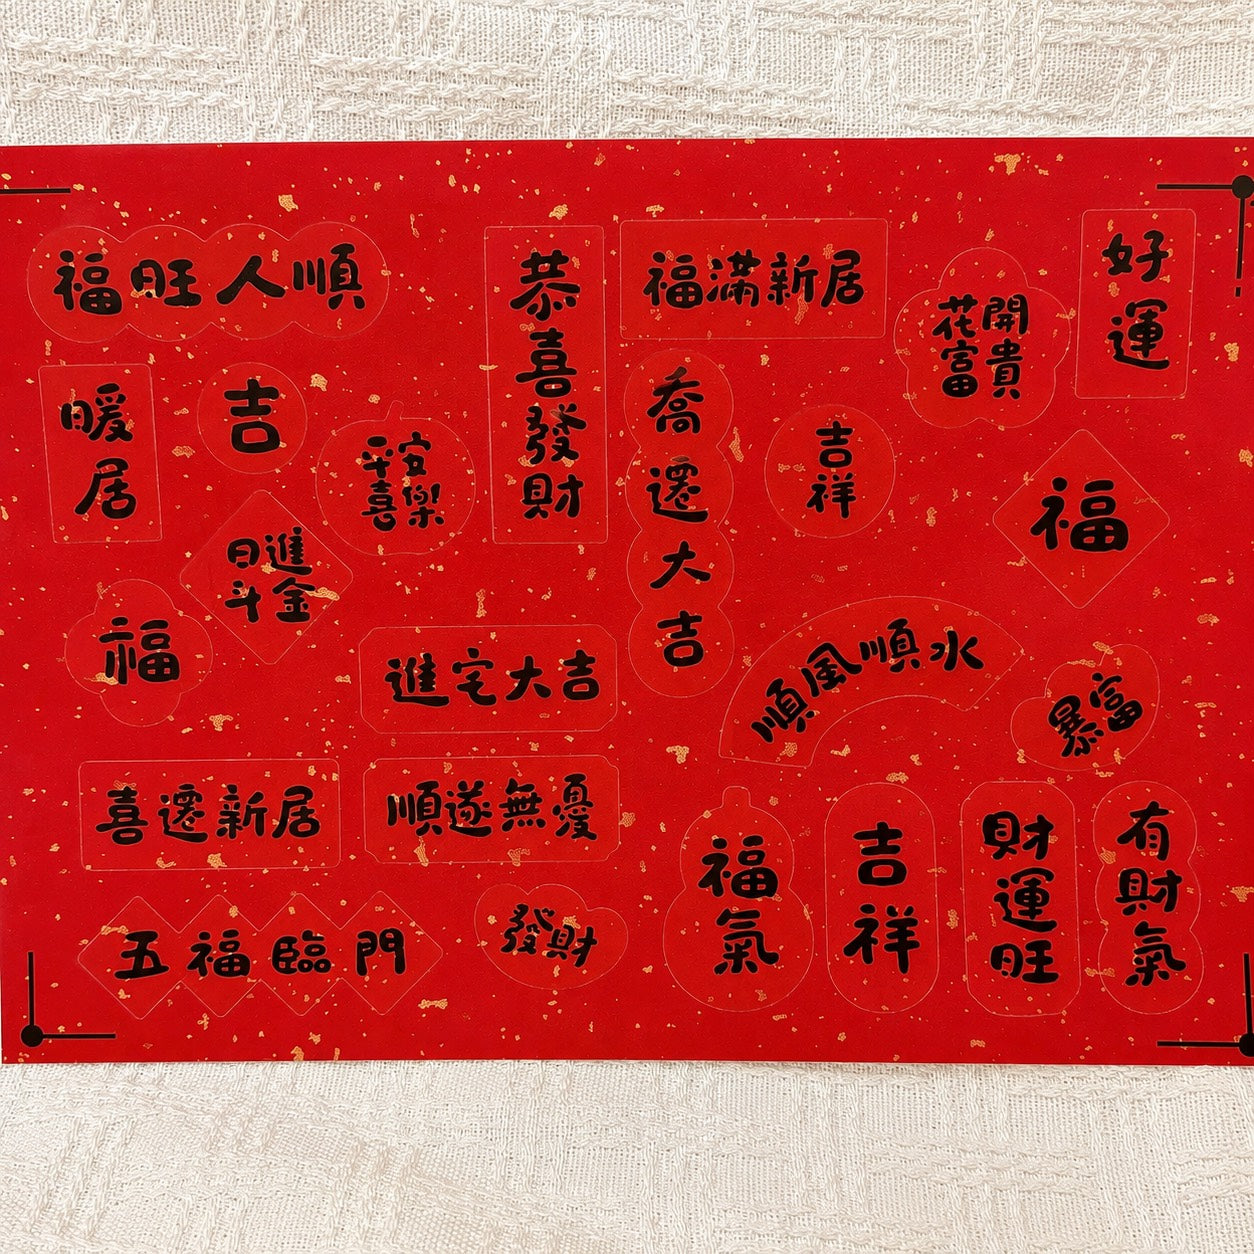 福旺人順
恭喜發財
福滿新居
花開富貴
好運
暖居
吉
平安喜樂
喬遷大吉
吉祥
福
日進斗金
福
進宅大吉
順風順水
暴富
喜遷新居
順遂無憂
福氣
吉祥
財運旺
有財氣
五福臨門
發財